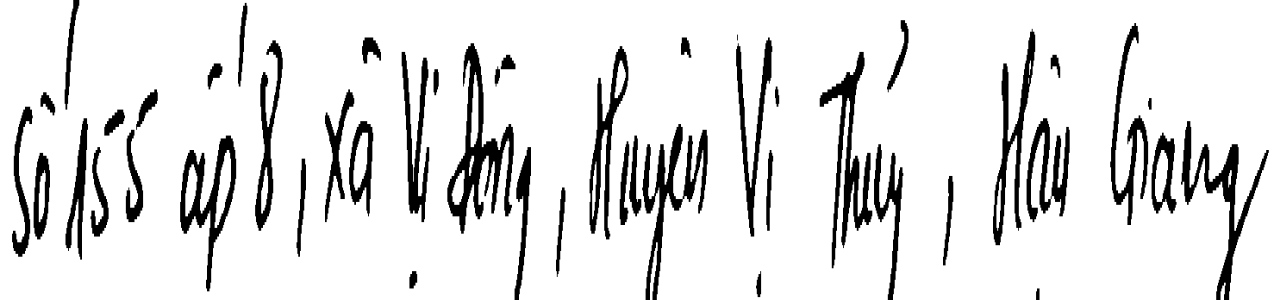 Số 155 ấp 8, Xã Vị Đông, Huyện Vị Thuỷ, Hậu Giang